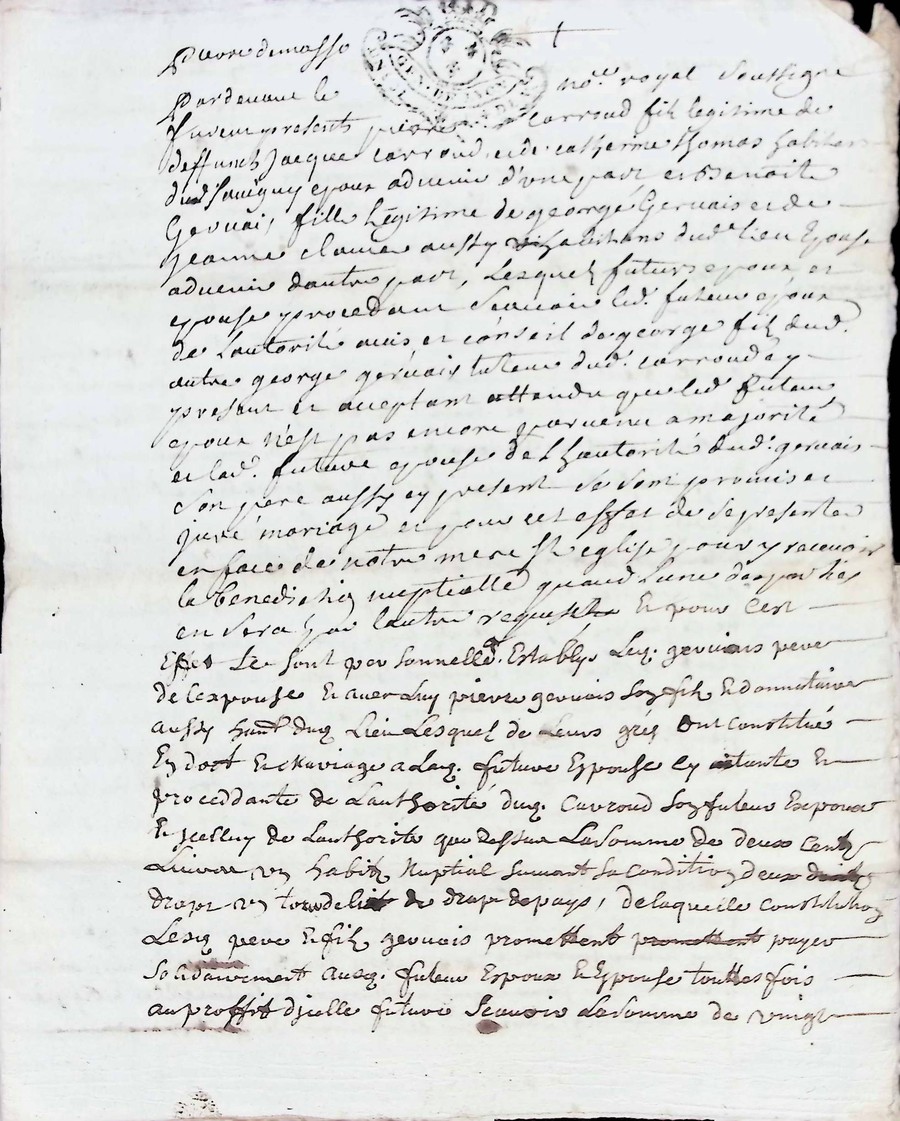 Pardevant le no.re royal soussigné
furent presents pierre carroud fils legitime de
deffunct Jacque carroud et de catherine thomas habitans
dud Savigny epoux advenir d'une part et Benoite
Gervais fille legitime de george Gervais et de
jeanne claire aussy habitans dud. lieu Epouse
advenir dautre part, Lesquels futurs epoux et
epouse procedant Scavoir led. futeur epoux
de Lautorité avis et conseil de george fils dud.
autre george gervais tuteur dud. carroud cy
present et acceptant attendu que led futeur
epoux n'est pas encore parvenu a majorité
et lad. future epouse de Lhautorité dud. gervais
son pere aussy cy present se sont promis et
juré mariage et pour cet effet de se presenter
en face de notre mere Ste eglise pour y recevoir
la benediction nuptialle quand Lune des parties
en sera par lautre requise Et pour cest
Effet Se sont personnelled. Establys Leq. gervais pere
de Lexpouse Et avec Luy pierre gervais Son fils Et donnataire
aussy hant. duq. Lieu Lesquels de Leurs grés Ont constitué
En dost Et Mariage a Laq. future Espouse cy Et
proceddante de Lauthorité duq. Carroud Son futeur Expoux
Et jcelluy de Lauthorité que dessus La Somme de deux Cents
Livres un habits Nuptial suivant Sa Condition deux
draps un tour de lict de drap de pays, de laquelle Constitution
Lesq. pere Et fils gervais promettent promettent payer
Solidairement ausq. futeur Espoux Et Espouse touttes fois
au proffit djcelle future Scavoir La Somme de vingt